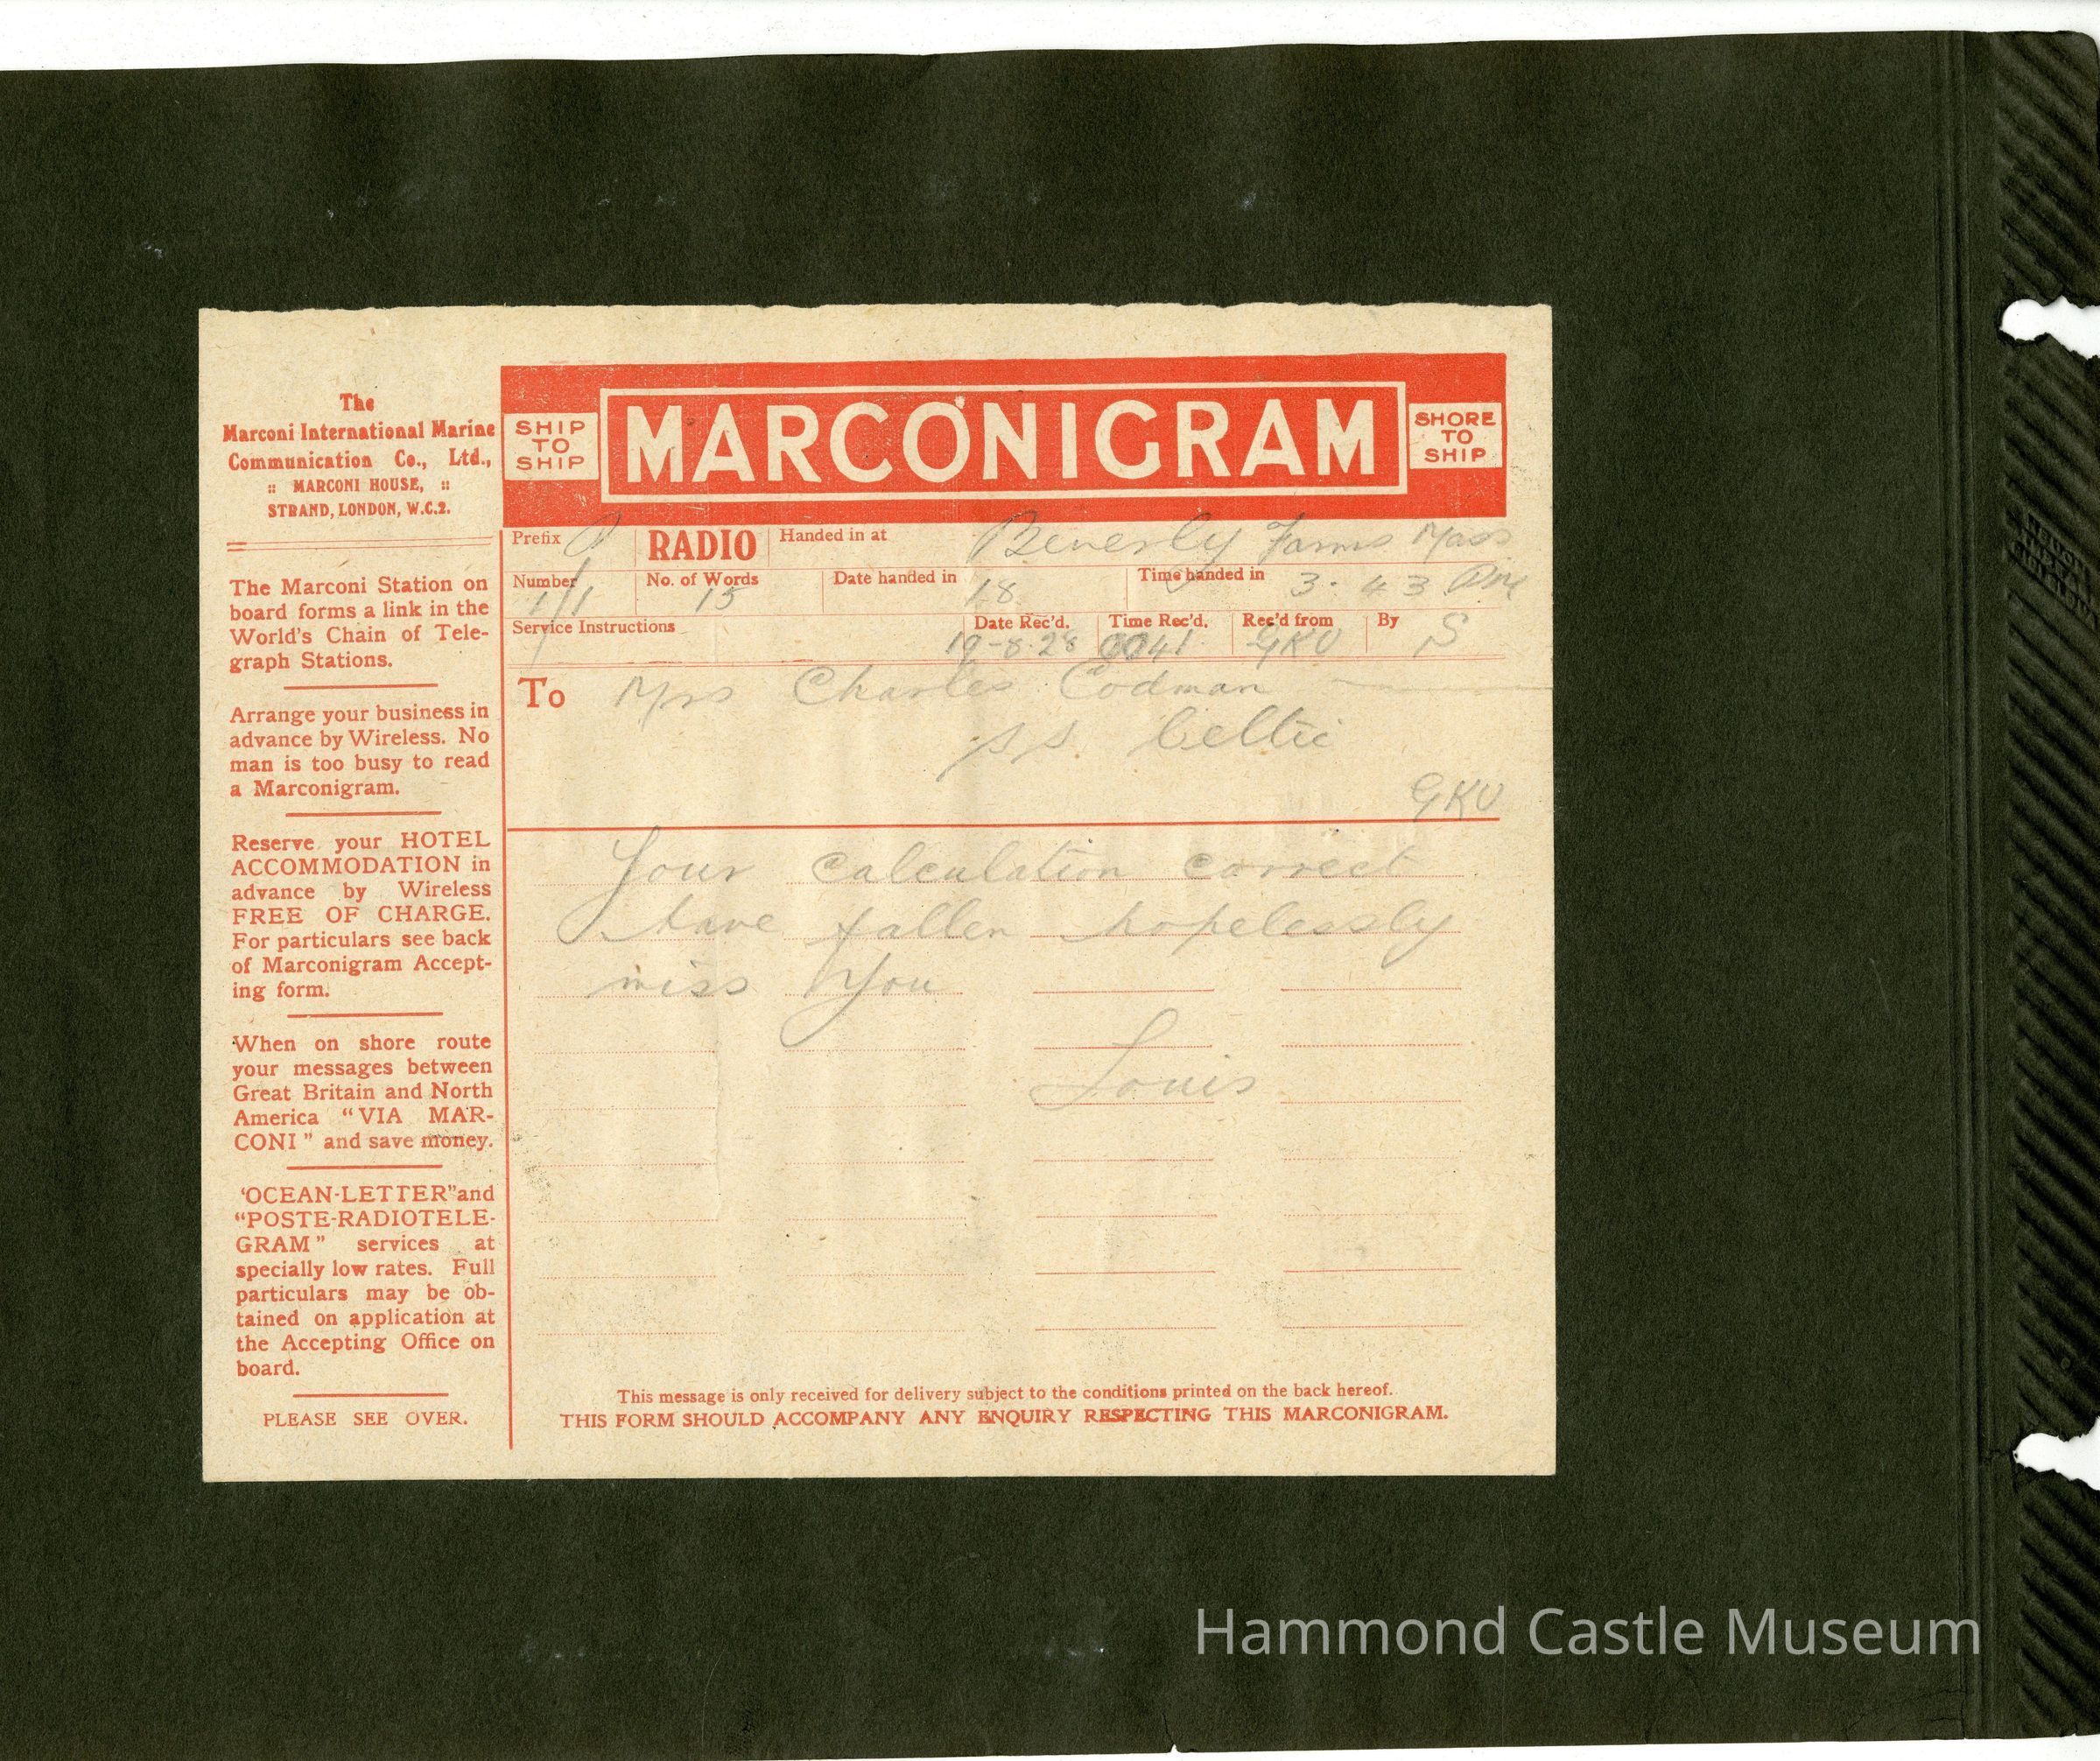 The
Marconi International Marine
Communication Co., Ltd.,
:: MARCONI HOUSE, ::
STRAND, LONDON, W.C.2.
The Marconi Station on
board forms a link in the
World's Chain of Tele-
graph Stations.
Arrange your business in
advance by Wireless. No
man is too busy to read
a Marconigram.
Reserve your HOTEL
ACCOMMODATION in
advance by Wireless
FREE OF CHARGE.
For particulars see back
of Marconigram Accept-
ing form.
When on shore route
your messages between
Great Britain and North
America "VIA MAR-
CONI" and save money.
'OCEAN-LETTER" and
"POSTE-RADIOTELE-
GRAM" services at
specially low rates. Full
particulars may be ob-
tained on application at
the Accepting Office on
board.
PLEASE SEE OVER.
SHIP
TO
SHIP
MARCONIGRAM
SHORE
TO
SHIP
Prefix RADIO Handed in at Beverly Farms Mass
Number 1/1 No. of Words 15 Date handed in 18 Time handed in 3.43 Pm
Service Instructions Date Rec'd. 19-8-28 Time Rec'd. 0041 Rec'd from GKU By S
To Mrs Charles Codman
SS. Celtic
GKU
Your calculation correct
have fallen hopelessly
miss You
Louis
This message is only received for delivery subject to the conditions printed on the back hereof.
THIS FORM SHOULD ACCOMPANY ANY ENQUIRY RESPECTING THIS MARCONIGRAM.
Hammond Castle Museum